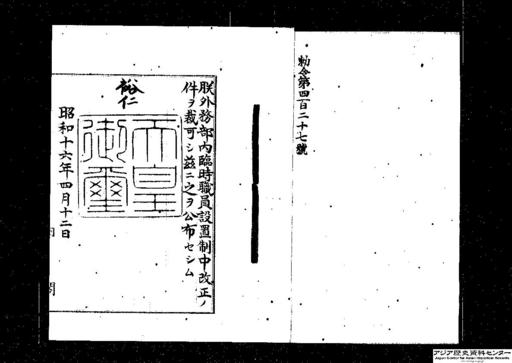 勅令第四百二十七號
朕外務部内臨時職員設置制中改正ノ
件ヲ裁可シ茲ニ之ヲ公布セシム
裕仁
天皇
御璽
昭和十六年四月十二日
内閣
アジア歴史資料センター
Japan Center for Asian Historical Records